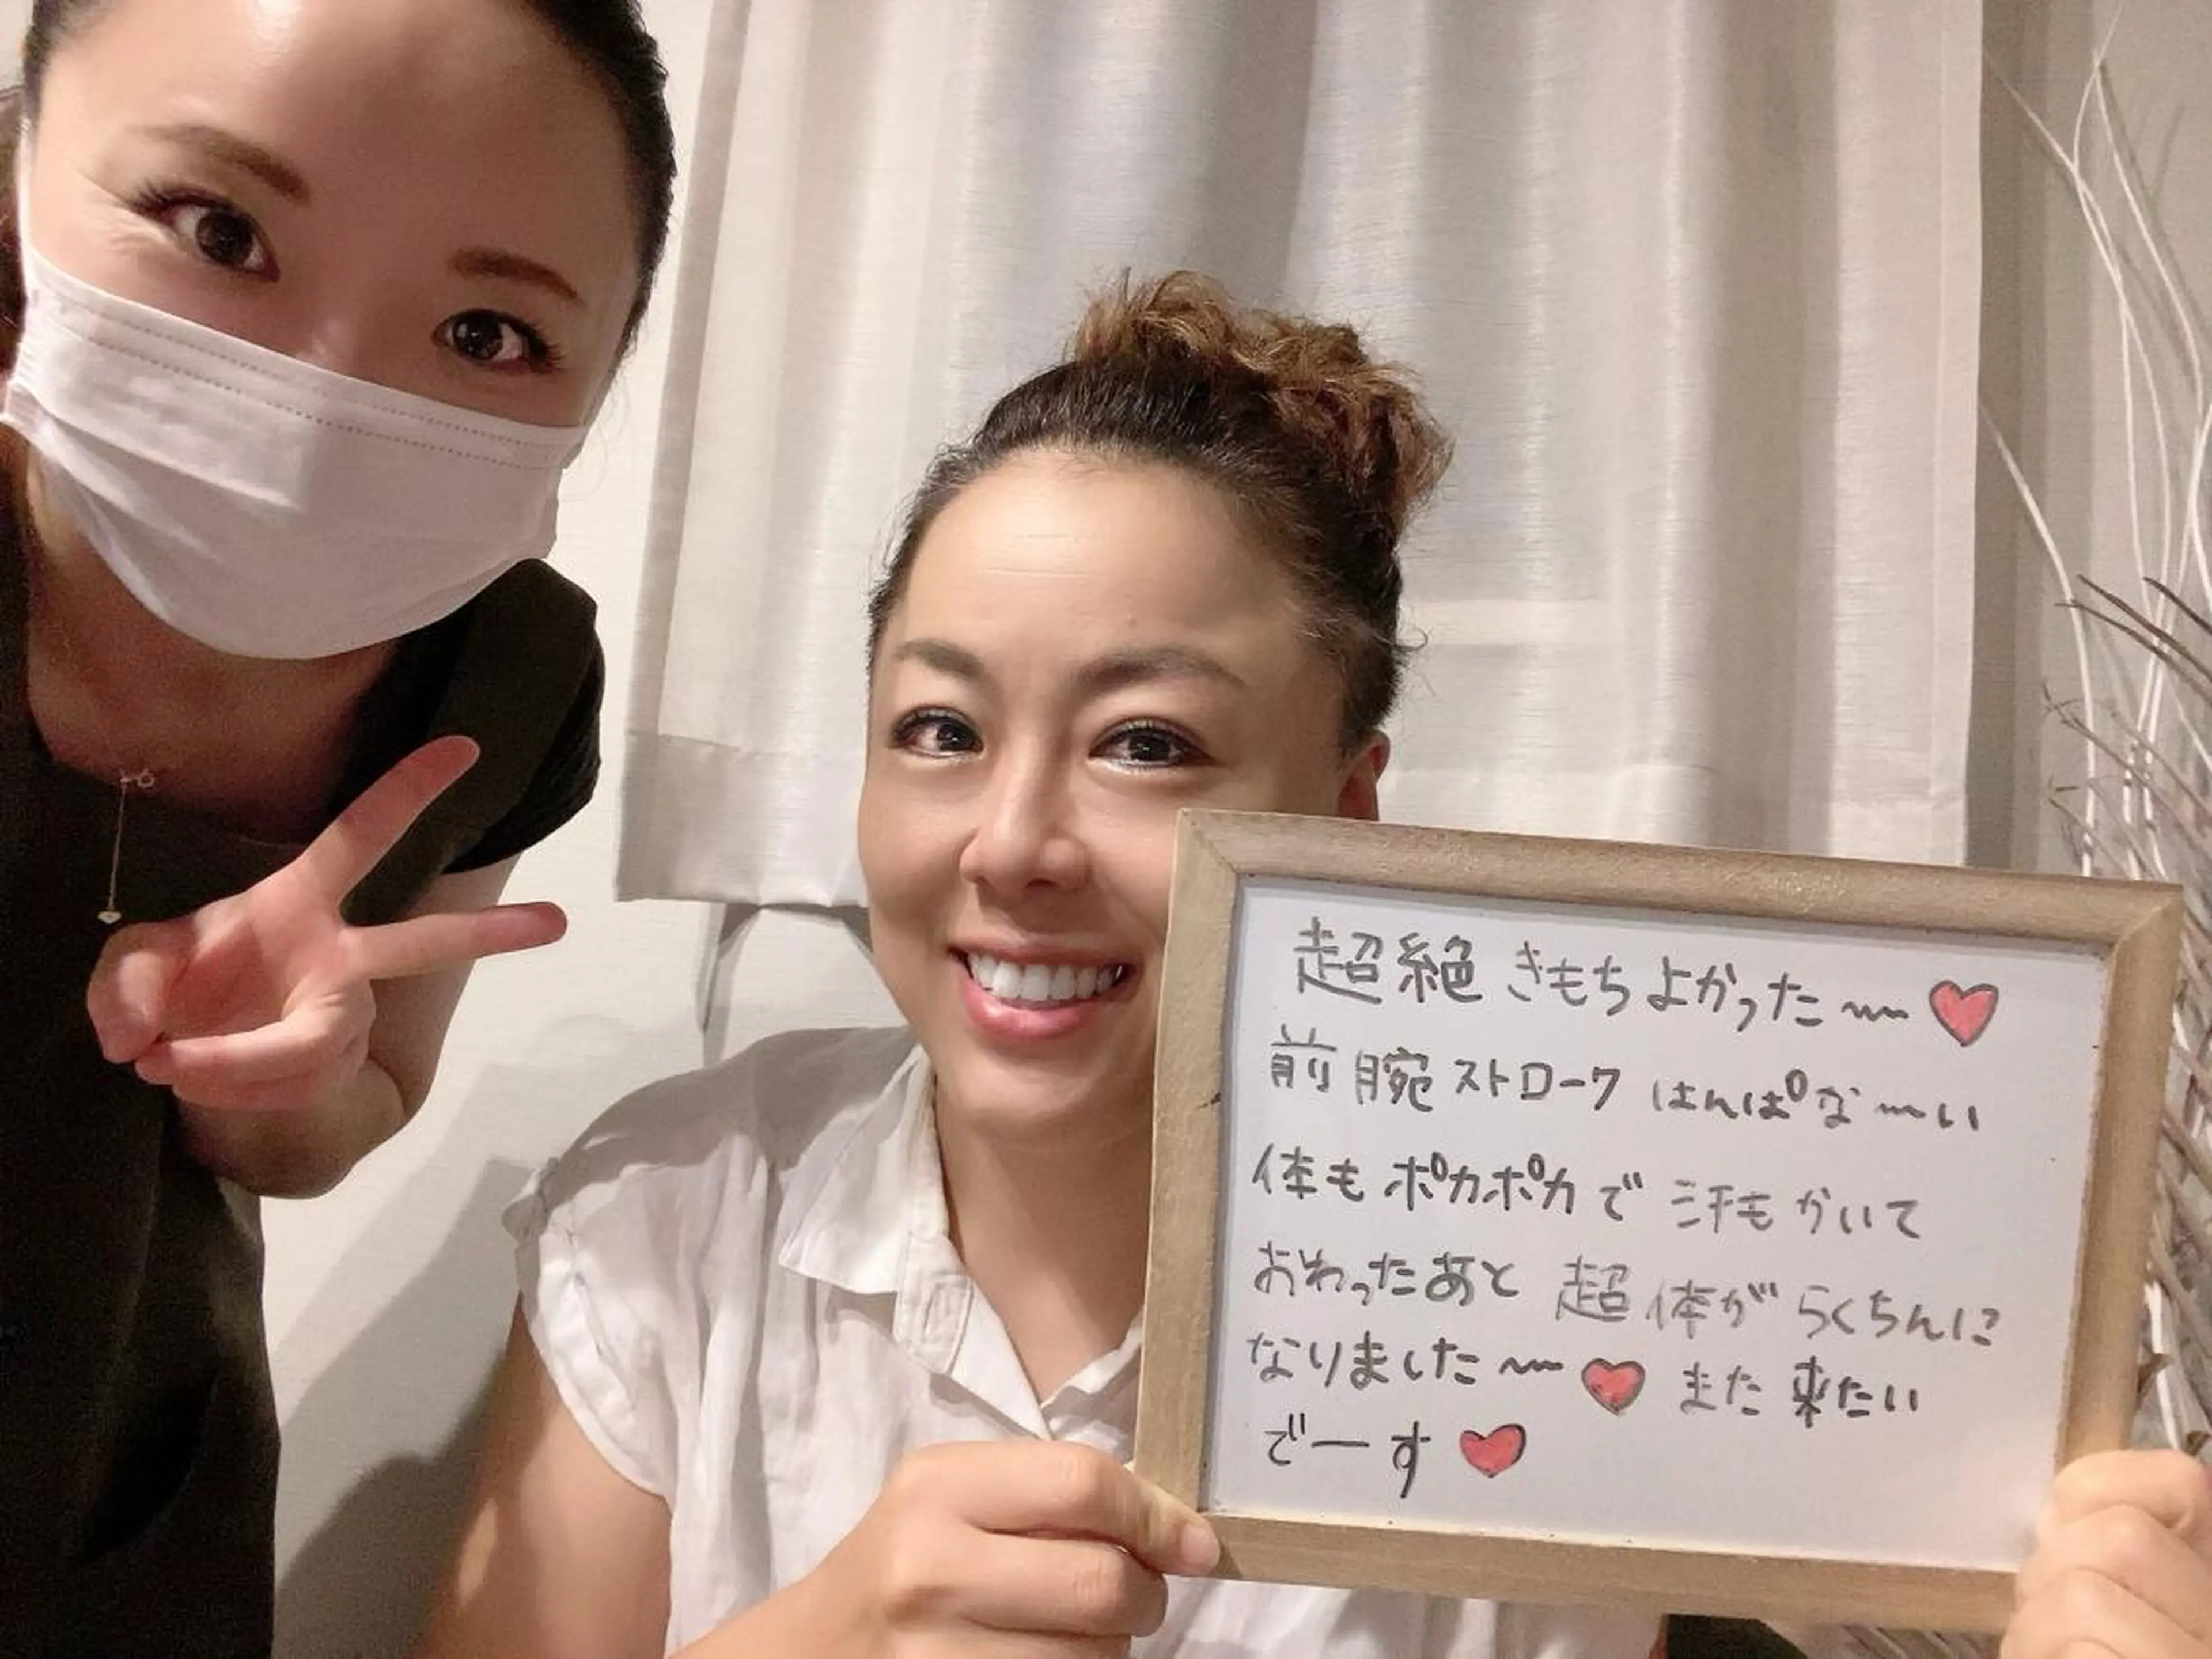 超絶きもちよかった〜〜♥
前腕ストロークはんぱな〜い
体もポカポカで汗もかいて
おわったあと超体がらくちんに
なりました〜〜♥また来たい
でーす♥